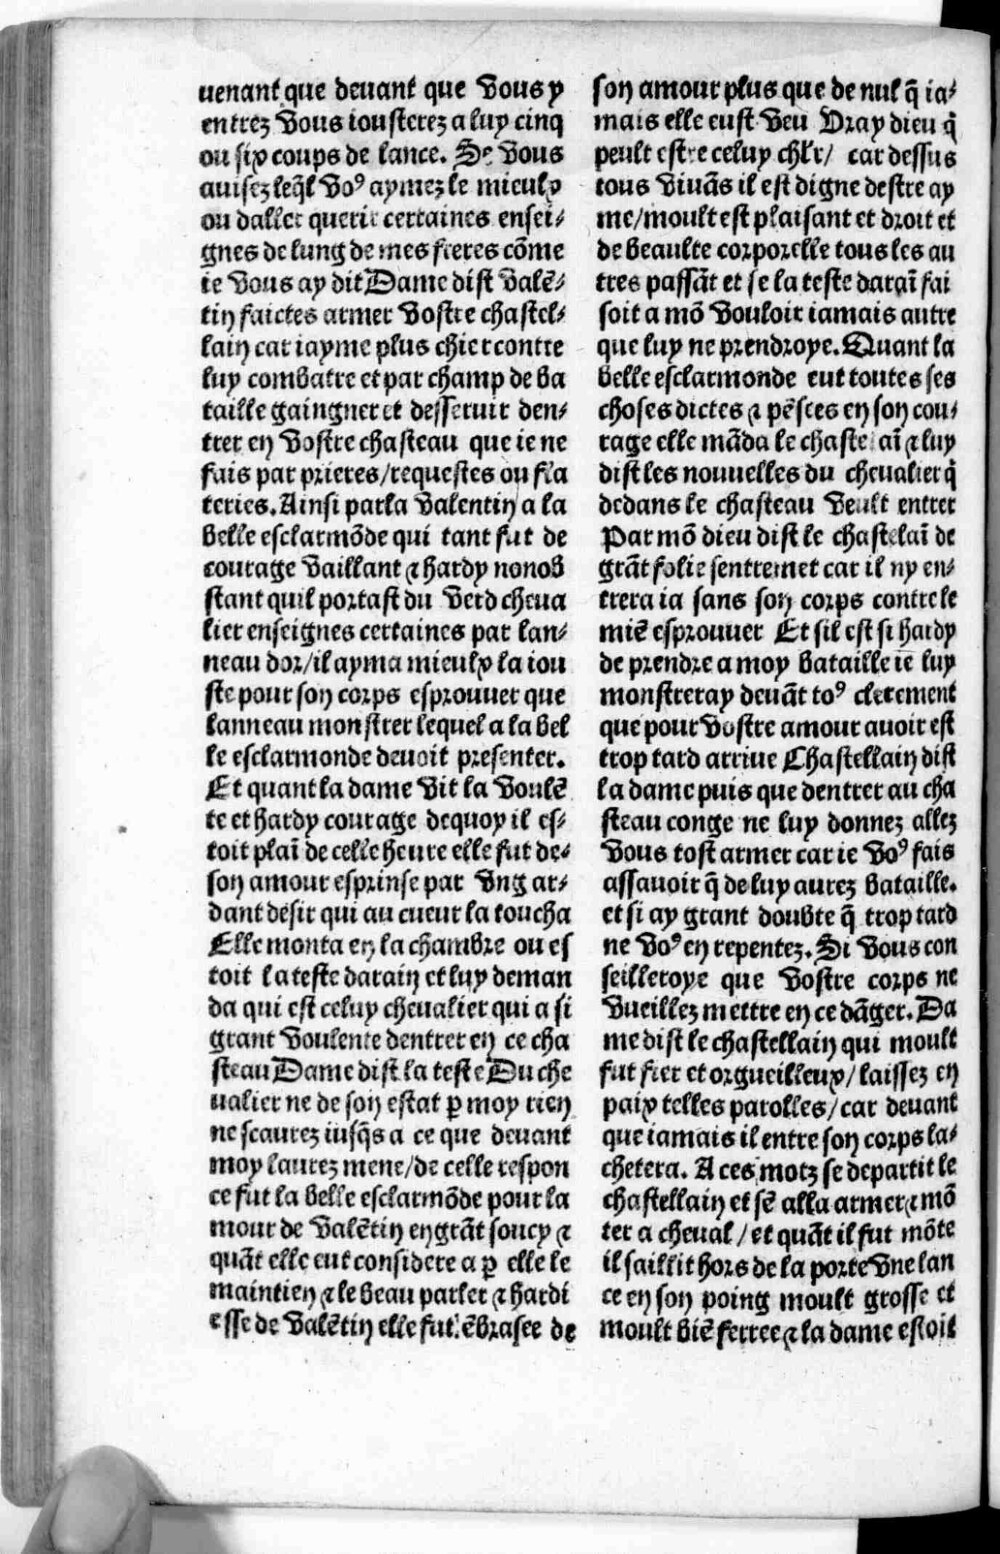 uenant que deuant que vous y
entrez vous iousterez a luy cinq
ou six coups de lance. Se vous
auisez leq̃l vo⁹ aymez le mieulx
ou daller querir certaines ensei-
gnes de lung de mes freres cõme
ie vous ay dit Dame dist valẽ-
tin faictes armer vostre chastel-
lain car iayme plus chier contre
luy combatre et par champ de ba
taille gaingner et desseruir den-
trer en vostre chasteau que ie ne
fais par prieres/requestes ou fla
teries. Ainsi parla valentin a la
belle esclarmõde qui tant fut de
courage vaillant ⁊ hardy nonob
stant quil portast du verd cheua
lier enseignes certaines par lan-
neau dor/il ayma mieulx la iou
ste pour son corps esprouuer que
lanneau monstrer lequel a la bel
le esclarmonde deuoit presenter.
Et quant la dame vit la voulẽ
te et hardy courage dequoy il es-
toit plaĩ de celle heure elle fut de-
son amour esprinse par vng ar-
dant desir qui au cueur la toucha
Elle monta en la chambre ou es
toit la teste darain et luy deman
da qui est celuy cheualier qui a si
grant voulente dentrer en ce cha
steau Dame dist la teste Du che
ualier ne de son estat ꝑ moy rien
ne scaurez iusq̃s a ce que deuant
moy laurez mene/de celle respon
ce fut la belle esclarmõde pour la
mour de valẽtin en grãt soucy ⁊
quãt elle eut considere a ꝑ elle le
maintien ⁊ le beau parler ⁊ hardi
esse de valẽtin elle fut ẽbrasee de
son amour plus que de nul q̃ ia-
mais elle eust veu Vray dieu q̃
peult estre celuy chl̃r/ car dessus
tous viuãs il est digne destre ay
me/moult est plaisant et droit et
de beaulte corporelle tous les au
tres passãt et se la teste daraĩ fai
soit a mõ vouloir iamais autre
que luy ne prendroye. Quant la
belle esclarmonde eut toutes ses
choses dictes ⁊ pẽsees en son cou-
rage elle mãda le chastelaĩ ⁊ luy
dist les nouuelles du cheualier q̃
dedans le chasteau veult entrer
Par mõ dieu dist le chastelaĩ de
grãt folie sentremet car il ny en-
trera ia sans son corps contre le
miẽ esprouuer Et sil est si hardy
de prendre a moy bataille ie luy
monstreray deuãt to⁹ clerement
que pour vostre amour auoir est
trop tard arriue Chastellain dist
la dame puis que dentrer au cha
steau conge ne luy donnez allez
vous tost armer car ie vo⁹ fais
assauoir q̃ de luy aurez bataille.
et si ay grant doubte q̃ trop tard
ne vo⁹ en repentez. Si vous con
seilleroye que vostre corps ne
vueillez mettre en ce dãger. Da
me dist le chastellain qui moult
fut fier et orgueilleux/ laissez en
paix telles parolles/ car deuant
que iamais il entre son corps la-
chetera. A ces motz se departit le
chastellain et sẽ alla armer ⁊ mõ
ter a cheual / et quãt il fut mõte
il saillit hors de la porte vne lan
ce en son poing moult grosse et
moult biẽ ferree ⁊ la dame estoit